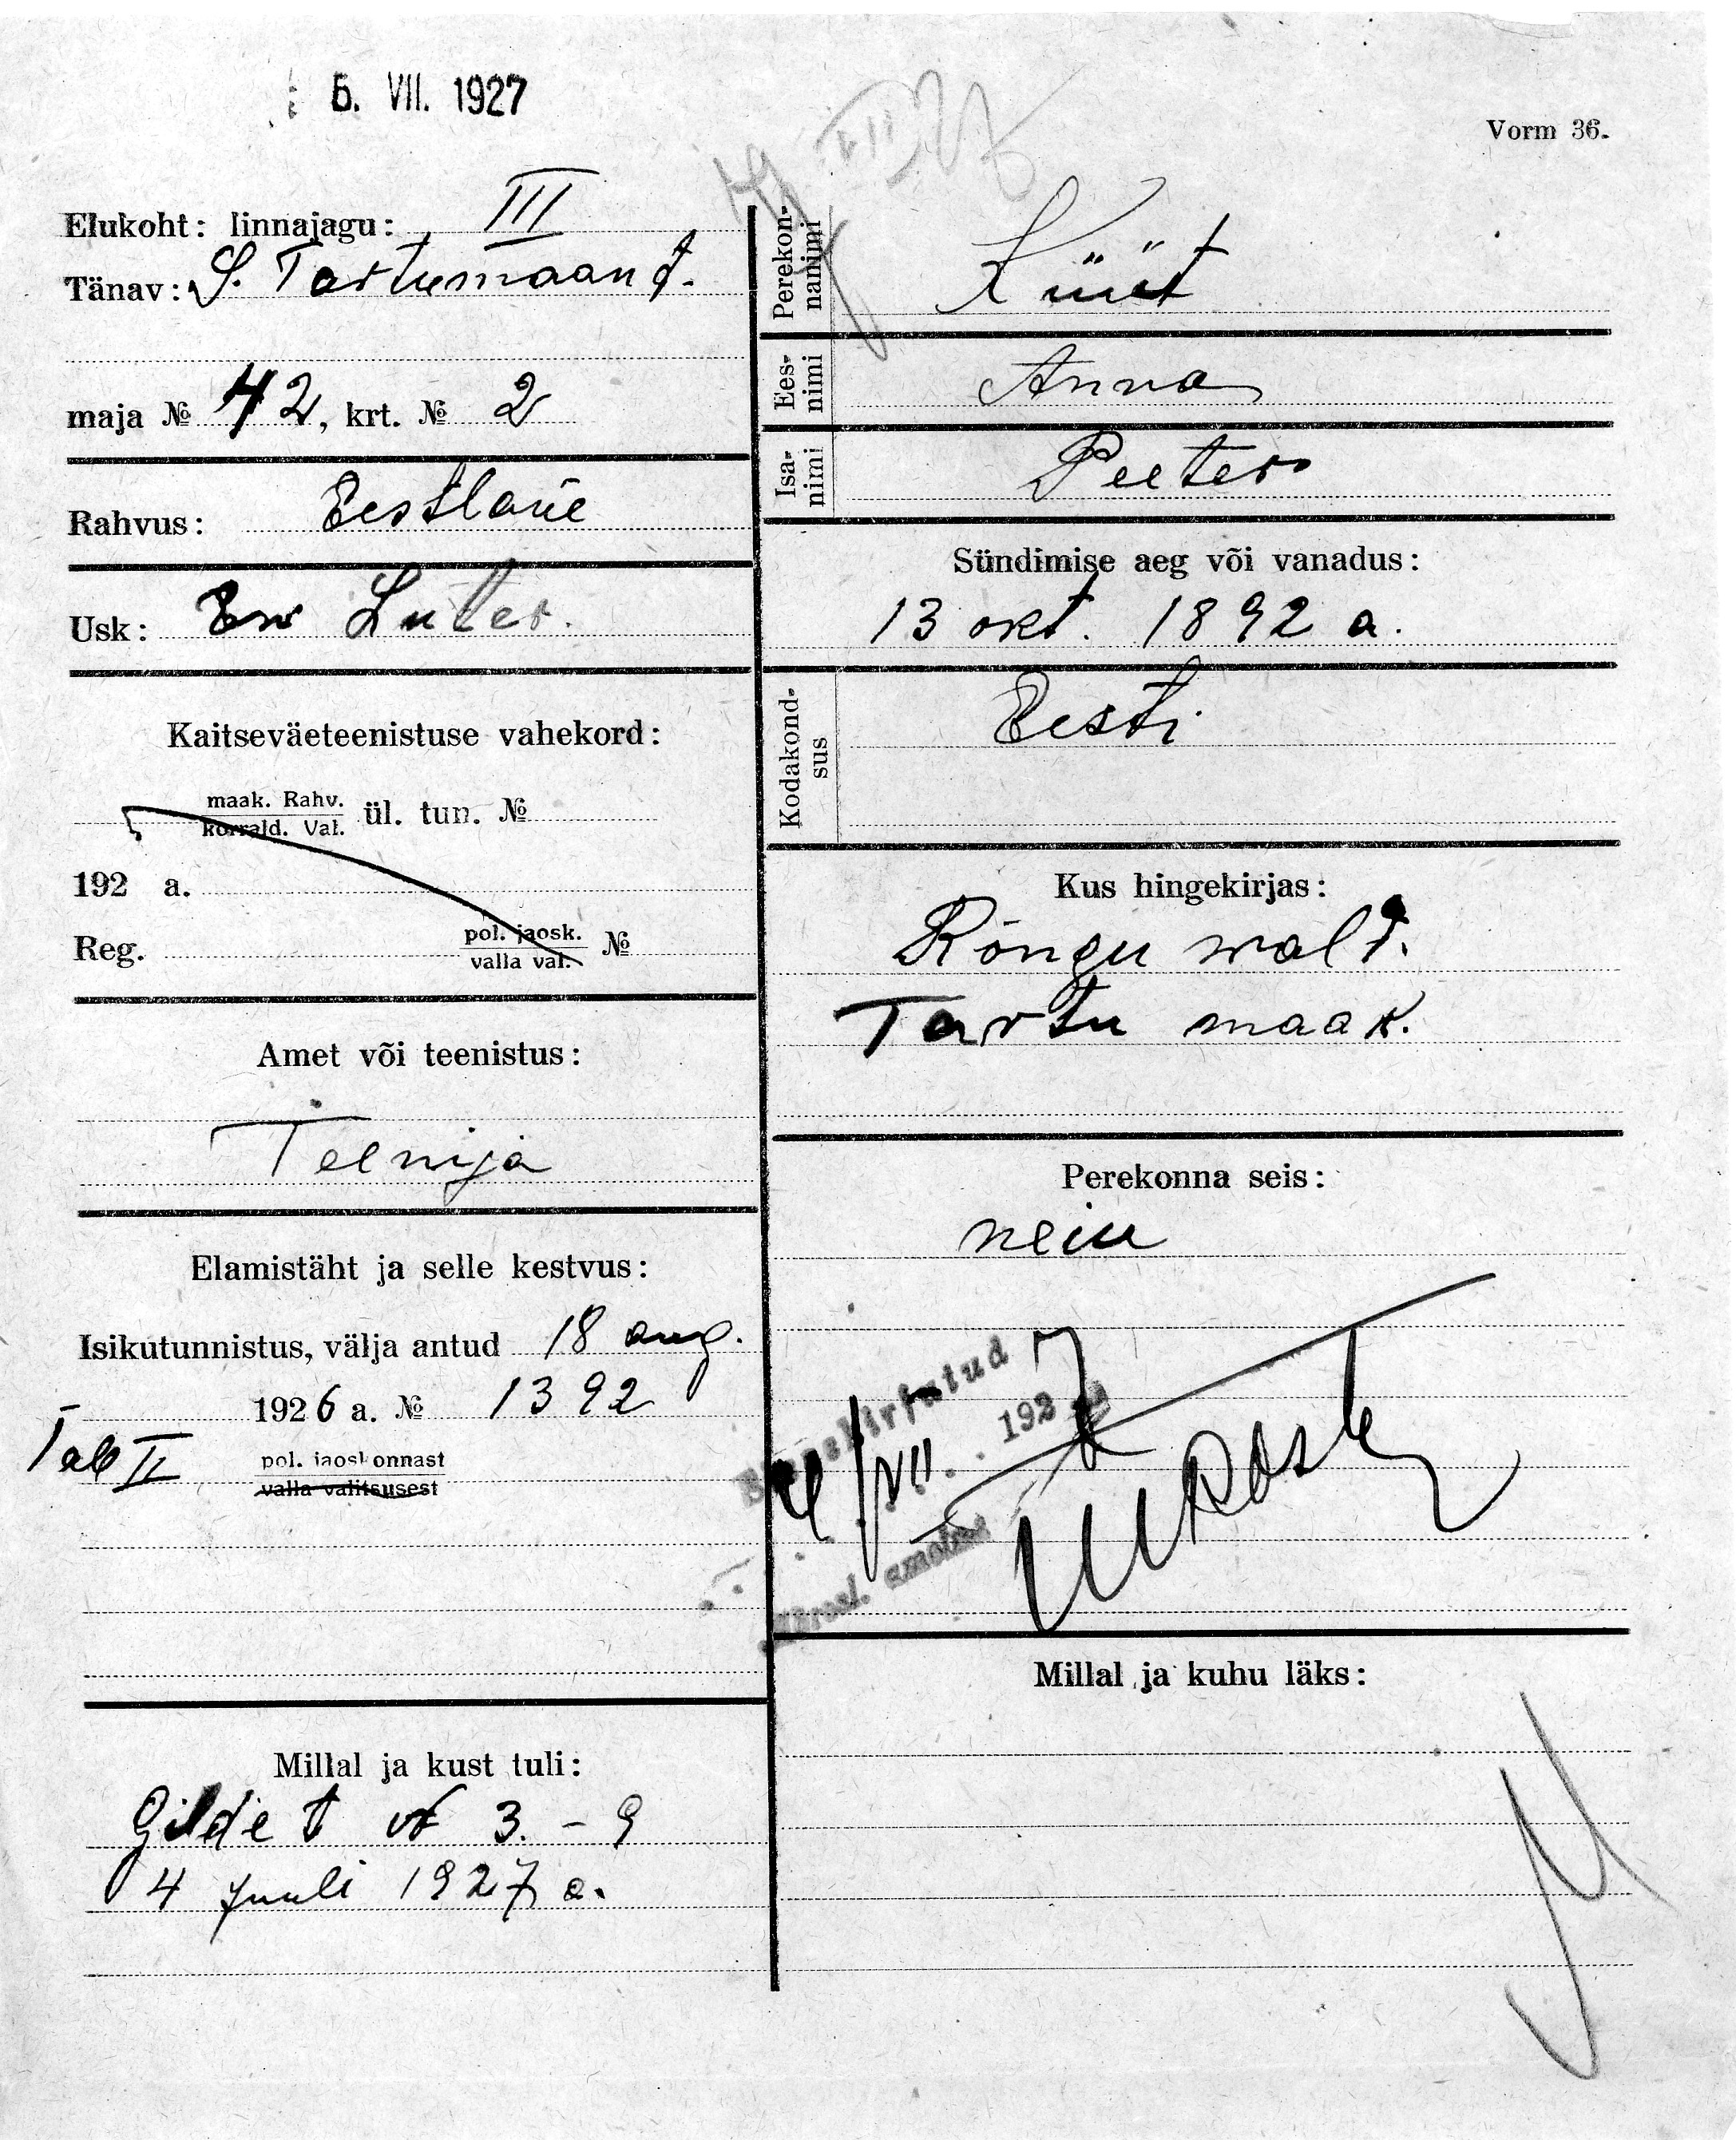 6. VII. 1927
Vorm 36.
Elukoht: linnajagu: III
Tänav: S. Tartumaan t.
maja № 42, krt. № 2
Rahvus: Eestlane
Usk: Ew Luter.
Kaitseväeteenistuse vahekord:
maak. Rahv.
korrald. Val. ül. tun. №
192 a.
Reg. pol. jaosk. №
valla val.
Amet või teenistus:
Teenija
Elamistäht ja selle kestvus:
Isikutunnistus, välja antud 18 aug.
1926 a. № 1392
Tal II pol. jaoskonnast
valla valitsusest
Millal ja kust tuli:
Gilde t № 3. - 9
4 Juuli 1927 a.
Perekonnanimi Küüt
Eesnimi Anna
Isanimi Peeter
Sündimise aeg või vanadus:
13 okt. 1892 a.
Kodakondsus Eesti
Kus hingekirjas:
Rõngu walt.
Tartu maak.
Perekonna seis:
neiu
192
Millal ja kuhu läks: